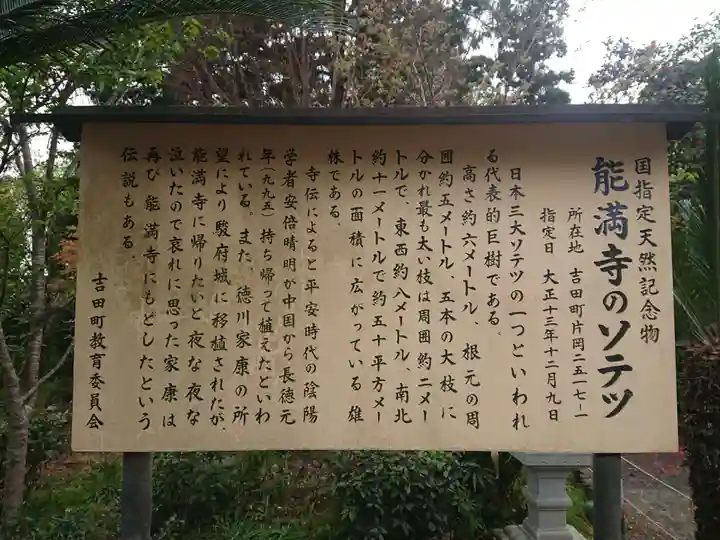 国指定天然記念物
能満寺のソテツ
所在地　吉田町片岡二五一七-一
指定日　大正十三年十二月九日
日本三大ソテツの一つといわれ
る代表的巨樹である。
高さ約六メートル、根元の周
囲約五メートル、五本の大枝に
分かれ最も太い枝は周囲約二メー
トルで、東西約八メートル、南北
約十一メートルで約五十平方メー
トルの面積に広がっている雄
株である。
寺伝によると平安時代の陰陽
学者安倍晴明が中国から長徳元
年(九九五)持ち帰って植えたといわ
れている。また、徳川家康の所
望により駿府城に移植されたが、
能満寺に帰りたいと夜な夜な
泣いたので哀れに思った家康は
再び能満寺にもどしたという
伝説もある。
吉田町教育委員会